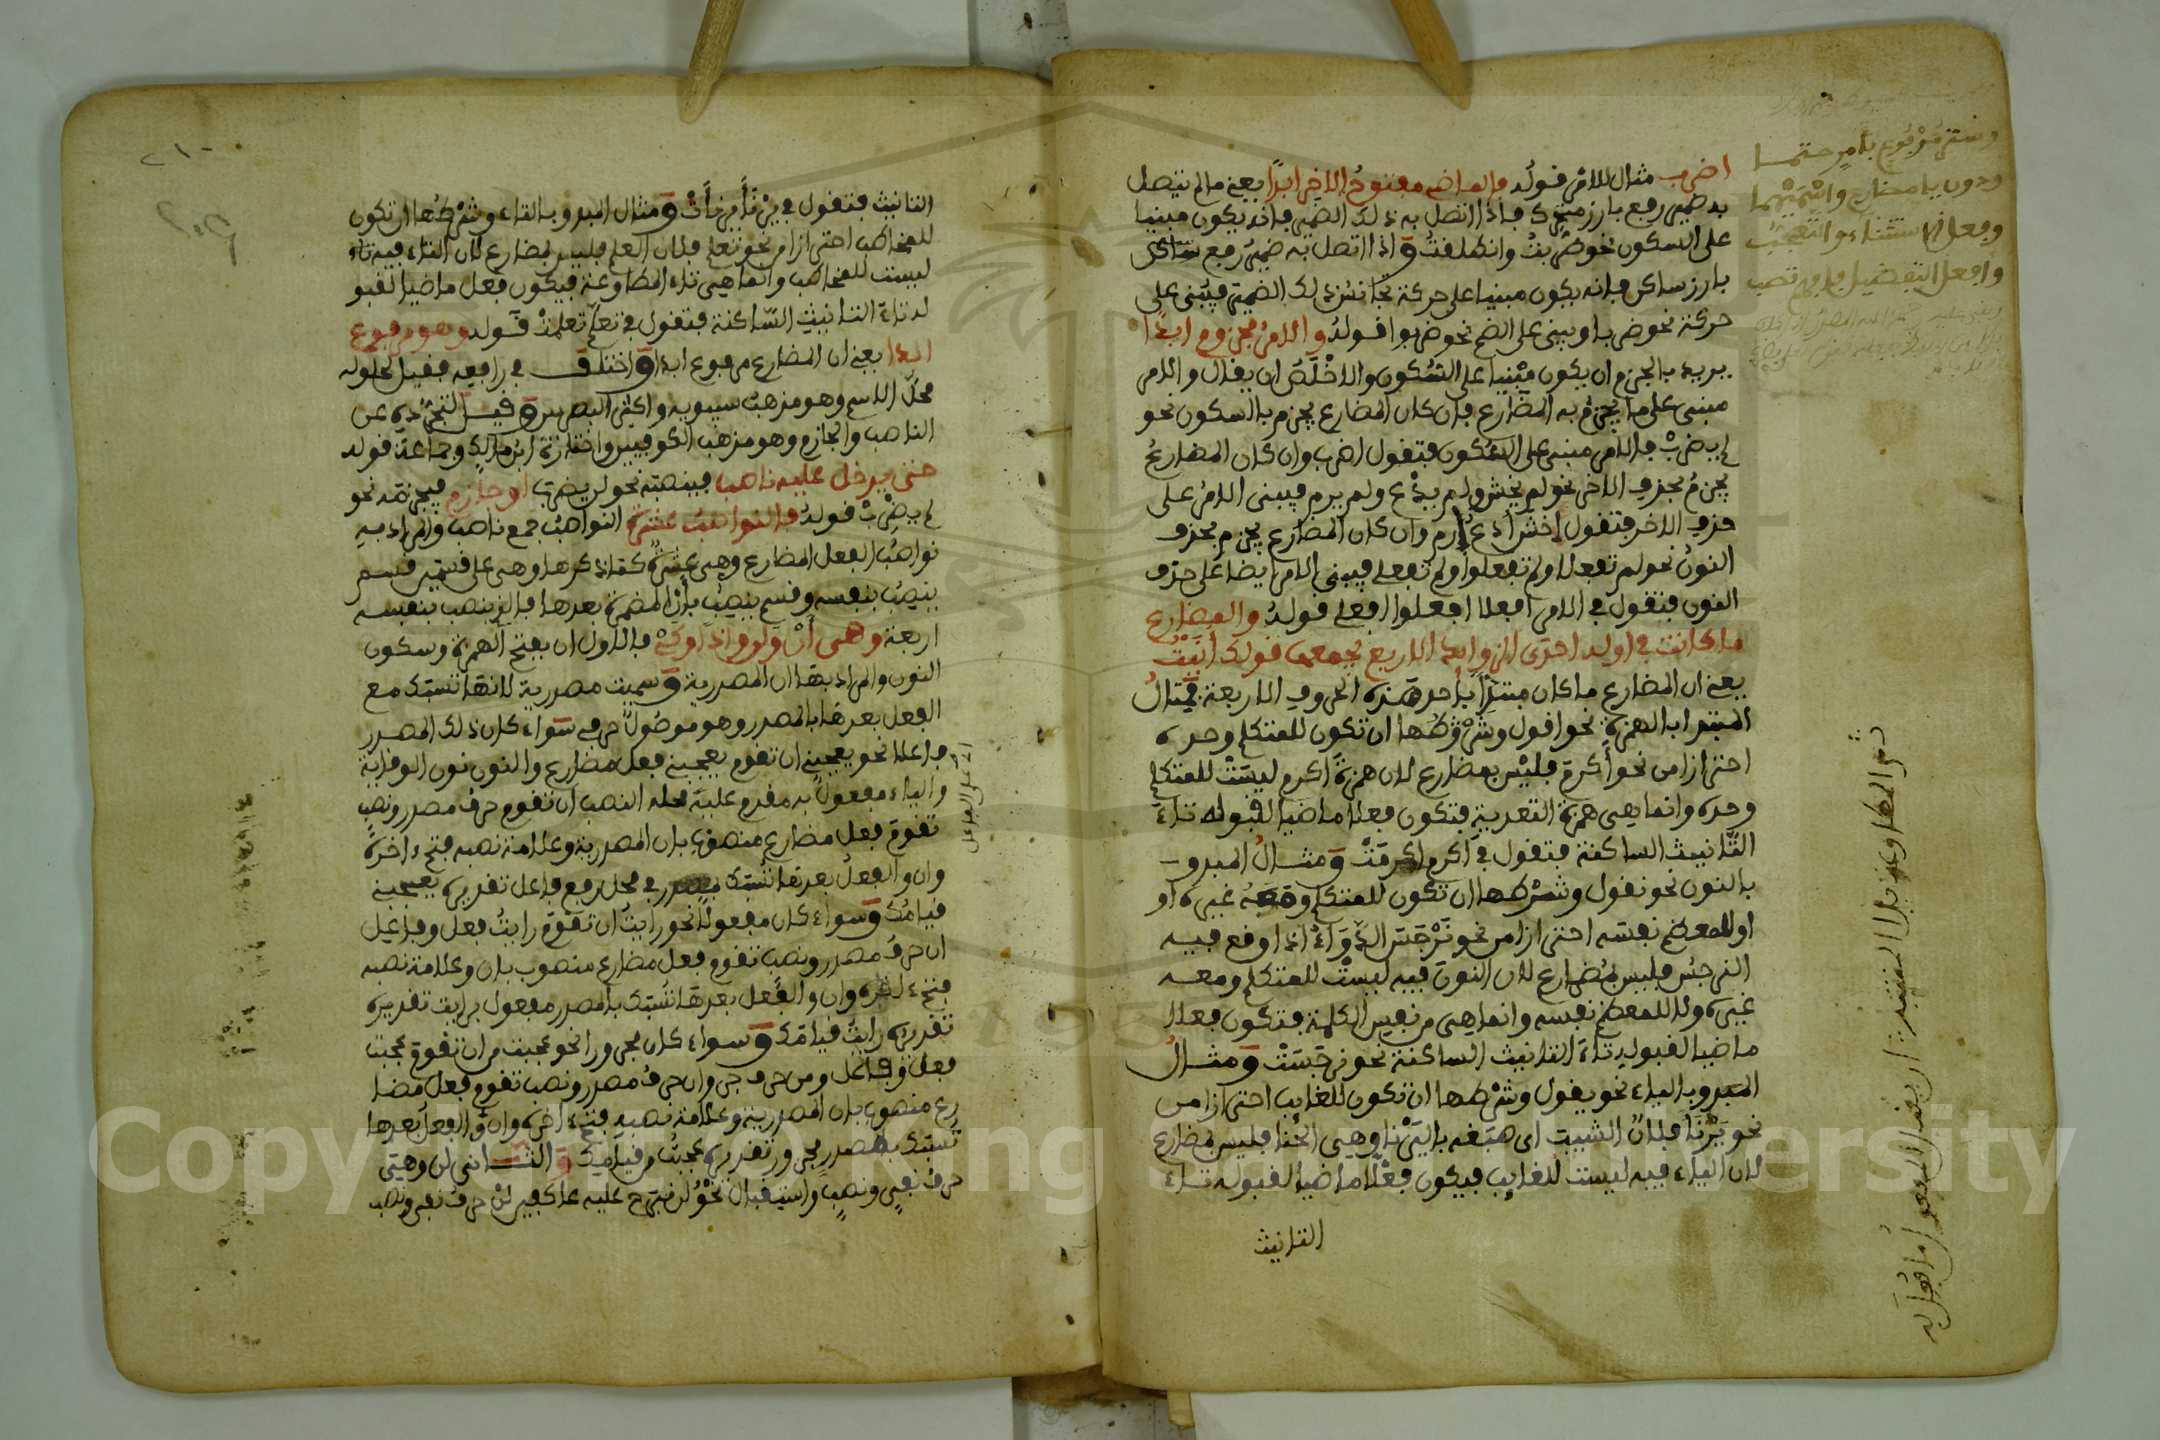 اضرب مثال للامر قوله فالماضي مفتوح الاخر ابدا يعني ما لم يتصل
به ضمير رفع بارز متحرك فاذا اتصل به ذلك الضمير فانه يكون مبنيا
على السكون نحو ضربت وانطلقت واذا اتصل به ضمير رفع ساكن
بارز ساكن فانه يكون مبنيا على حركة تجانس ذلك الضمير فيبنى على
حركة نحو ضربا ويبنى على الضم نحو ضربوا قوله والامر مجزوم ابدا
يريد بالجزم ان يكون مبنيا على السكون والاخلص ان يقال والامر
مبني على ما يجزم به المضارع فان كان المضارع يجزم بالسكون نحو
لم يضرب فالامر مبني على السكون فتقول اضرب وان كان المضارع
يجزم بحذف الاخر نحو لم يخش ولم يدع ولم يرم فيبنى الامر على
حذف الاخر فتقول اخش ادع ارم وان كان المضارع يجزم بحذف
النون نحو لم تفعلا ولم تفعلوا ولم تفعلي فيبنى الامر ايضا على حذف
النون فتقول في الامر افعلا افعلوا افعلي قوله والمضارع
ما كانت في اوله احدى الزوايد الاربع يجمعها قولك انيت
يعني ان المضارع ما كان مبتدأ بأحد هذه الحروف الاربعة فمثال
المبدو بالهمزة نحو اقول وشرطها ان تكون للمتكلم وحده
احترازا من نحو أكرم فليس بمضارع لان همزة اكرم ليست للمتكلم
وحده وانما هي همزة التعدية فتكون فعلا ماضيا لقبوله تاء
التانيث الساكنة فتقول في اكرم اكرمت ومثال المبدو
بالنون نحو نقول وشرطها ان تكون للمتكلم ومعه غيره او
او للمعظم نفسه احترازا من نحو نرجس الدواء اذا وقع فيه
النرجس فليس بمضارع لان النون فيه ليست للمتكلم ومعه
غيره ولا للمعظم نفسه وانما هي من نفس الكلمة فتكون فعلا
ماضيا لقبوله تاء التانيث الساكنة نحو نرجست ومثال
المبدو بالياء نحو يقول وشرطها ان تكون للغايب احترازا من
نحو يرنا فلان الشيب اي صبغه باليرنا وهي الحنا فليس بمضارع
لان الياء فيه ليست للغايب فيكون فعلا ماضيا لقبوله تاء
التانيث
وستر مرفوع بأمر حتما
ودون يا مضارع واسميهما
وفعل الاستثناء والتعجب
وافعل التفضيل
التانيث فتقول في يرنأ يرنأت ومثال المبدو بالتاء وشرطها ان تكون
للمخاطب احترازا من نحو تعلم فلان العلم فليس بمضارع لان التاء فيه
ليست للمخاطب وانما هي تاء المطاوعة فيكون فعلا ماضيا لقبو
له تاء التانيث الساكنة فتقول في تعلم تعلمت قوله وهو مرفوع
ابدا يعني ان المضارع مرفوع ابدا واختلف في رافعه فقيل لحلوله
محل الاسم وهو مذهب سيبويه واكثر البصريين وقيل لتجرده عن
الناصب والجازم وهو مذهب الكوفيين واختاره ابن مالك وجماعة قوله
حتى يدخل عليه ناصب فينصبه نحو لن يضرب او جازم فيجزمه نحو
لم يضرب قوله فالنواصب عشرة النواصب جمع ناصب والمراد به
نواصب الفعل المضارع وهي عشرة كما ذكرها وهي على قسمين قسم
ينصب بنفسه وقسم ينصب بأن المضمرة بعدها فالذي ينصب بنفسه
اربعة وهي أن ولن واذا وكي فالاول ان بفتح الهمزة وسكون
النون والمراد بها ان المصدرية وسميت مصدرية لانها تسبك مع
الفعل بعدها بالمصدر وهو موصول حرفي سواء كان ذلك المصدر
فاعلا نحو يعجبني ان تقوم يعجبني فعل مضارع والنون نون الوقاية
والياء مفعول به مقدم عليه محله النصب ان تقوم حرف مصدر ونصب
تقوم فعل مضارع منصوب بان المصدرية وعلامة نصبه فتح اخره
وان والفعل بعدها تسبك بمصدر في محل رفع فاعل تقديره يعجبني
قيامك وسواء كان مفعولا نحو رايت ان تقوم رايت فعل وفاعل
ان حرف مصدر ونصب تقوم فعل مضارع منصوب بان وعلامة نصبه
فتح اخره وان والفعل بعدها تسبك بالمصدر مفعول برايت تقديره
تقديره رايت قيامك وسواء كان مجرورا نحو عجبت من ان تقوم عجبت
فعل وفاعل ومن حرف جر وان حرف مصدر ونصب تقوم فعل مضا
رع منصوب بان المصدرية وعلامة نصبه فتح اخره وان والفعل بعدها
تسبك بمصدر مجرور تقديره عجبت من قيامك والثاني لن وهي
حرف نفي ونصب واستقبال نحو لن نبرح عليه عاكفين لن حرف نفي ونصب
اي على الفاعل
Copyright © King Saud University